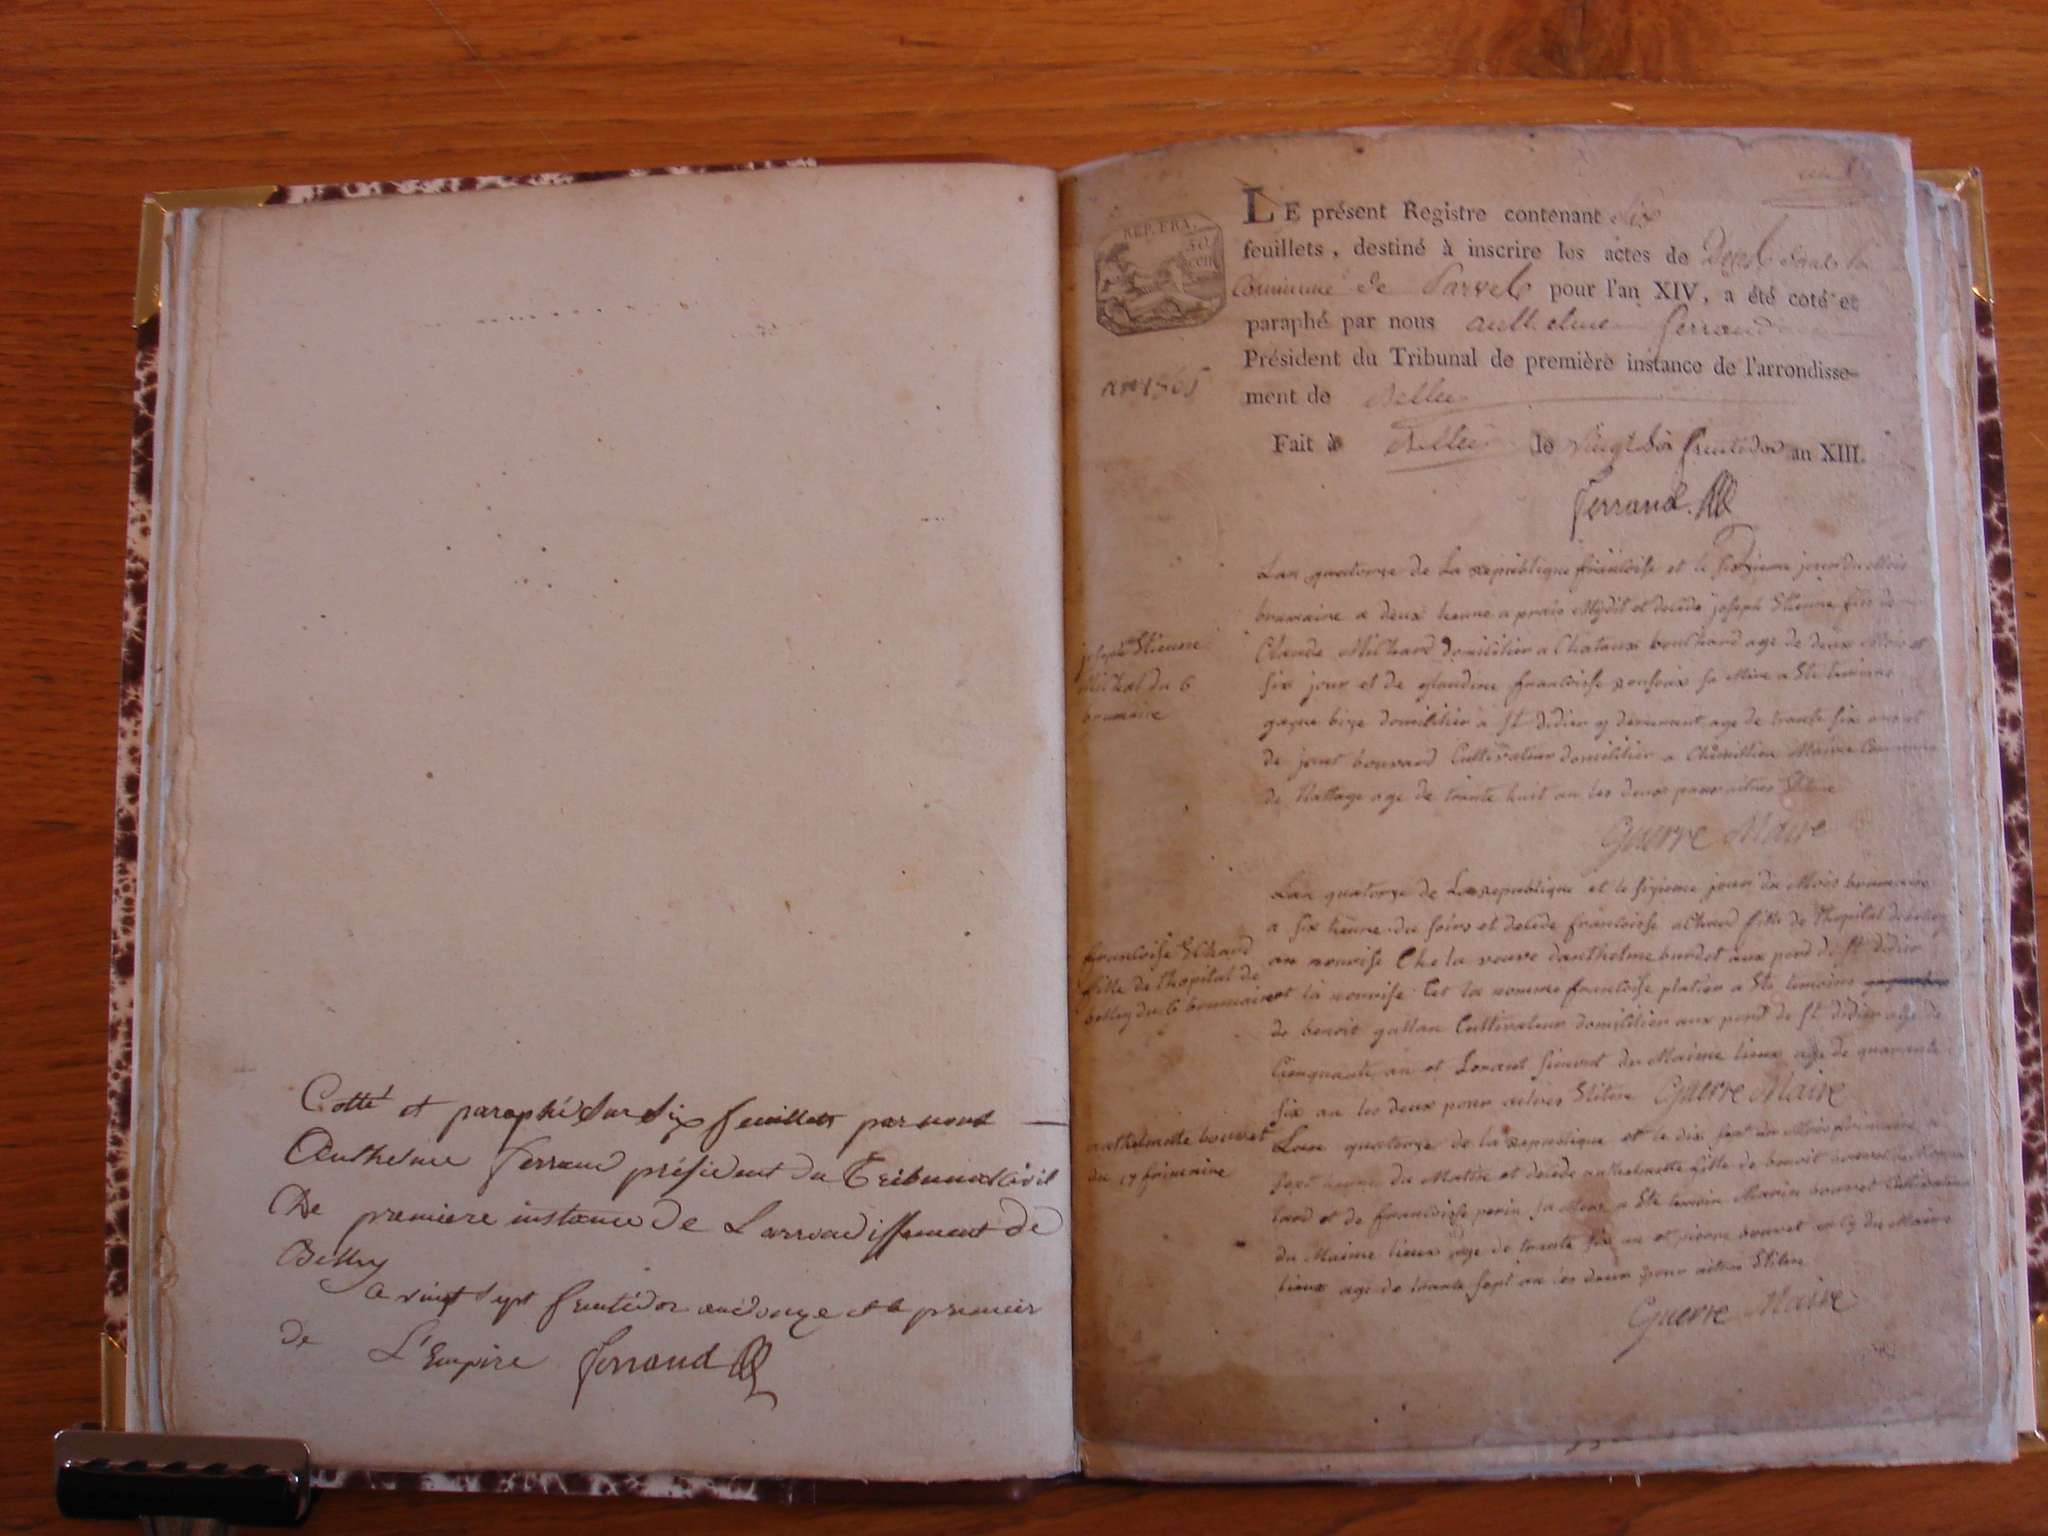 Cotté et paraphé sur six feuillets par nous
Anthelme ferrand président du Tribunal Civil
De premiere instance de Larrondissement de
Belley
a vingt sept fructidor an douze et le premier
de L'Empire ferrand
REP. FRA.
50
cen
LE présent Registre contenant six
feuillets, destiné à inscrire les actes de Deces dans la
Commune de Parves pour l'an XIV, a été coté et
paraphé par nous anthelme ferrand
Président du Tribunal de première instance de l'arrondisse-
ment de Belley
an 1805
Fait à Belley le vingt six fructidor an XIII.
ferrand
Lan quatorze de La republique francoise et le sixieme jour du Mois
brumaire a deux heure a prais Mydit et decede joseph Etienne fils de
Claude Milhard domicilier a Chataux bouchard age de deux Mois et
six jour et de glaudine francoisse sa Mere a Ete temoins
domicilier a St didier y age de trante six ans et
de bouvard Cultivateur domicilier a Maime Commune
de age de trante huit an les deux pour
joseph Etienne
Milhat du 6
brumaire
Guerre Maire
Lan quatorze de La republique et le sixieme jour du Mois brumaire
a six heure du soirs et decede francoisse fille de lhopital de belley
an nourise Che la veuve danthelme burdet aux pord de St didier
et la nourise Cet la nomme francoise platier a Ete temoins
de benoit gallan Cultivateur domicilier aux pord de St didier age de
Cinquante an et simont du Maime lieux age de quarante
six an les deux pour Guerre Maire
francoise
fille de lhopital de
belley du 6 brumaire
Lan quatorze de la republique et le dix sept du Mois frimaire a
sept heure du Matin et decede anthelmette fille de benoit bouvet
et de francoisse perin sa Mere a Ete temoin Marin bouvet Cultivateur
du Maime lieux age de trante six an et pierre bouvet du Maime
lieux age de trante sept an les deux pour
anthelmette bouvet
du 17 frimaire
Guerre Maire